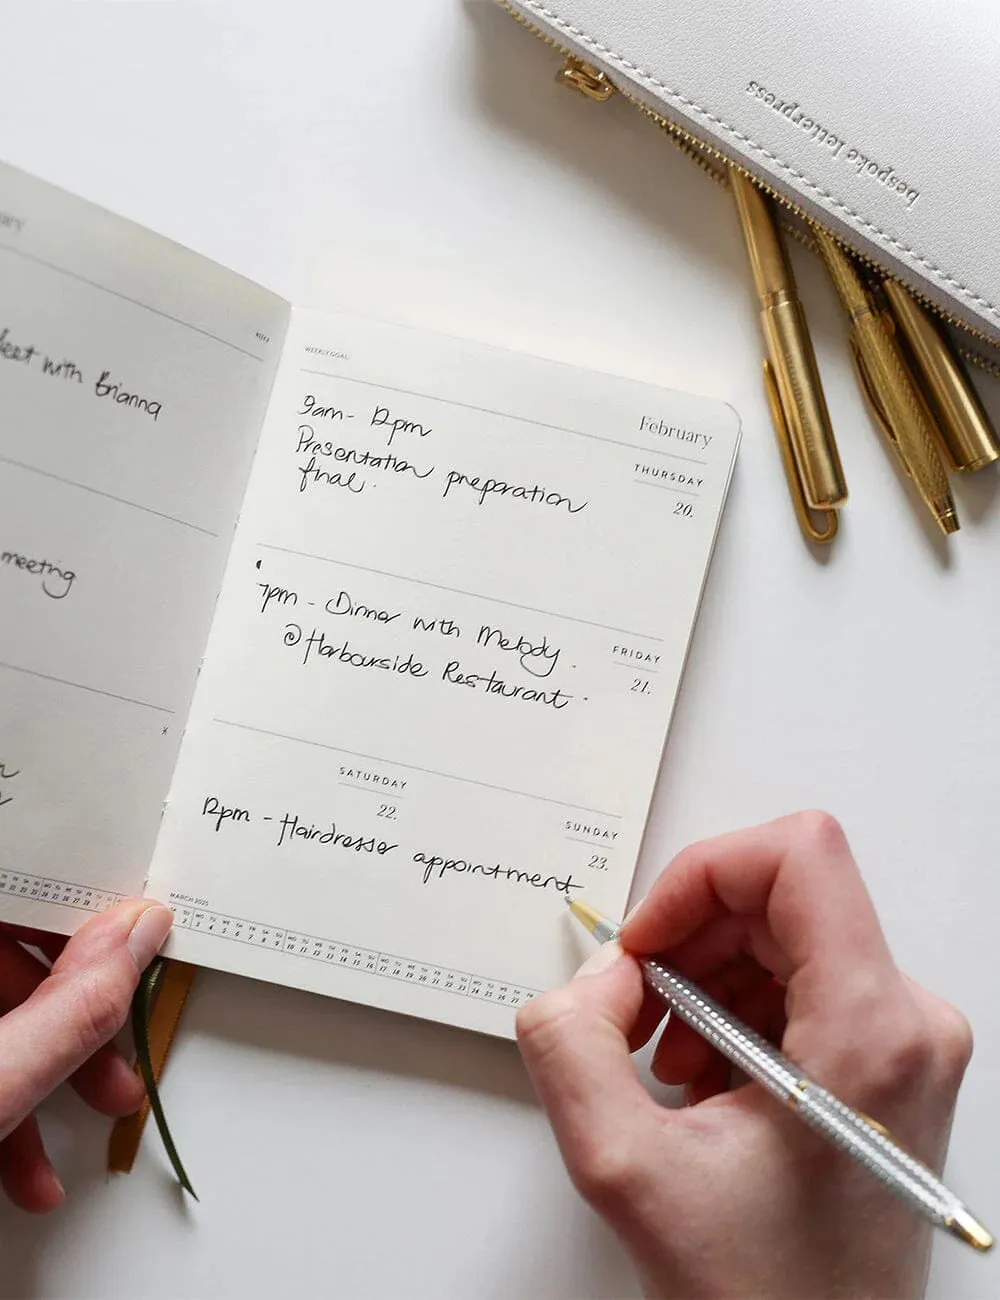 bespoke letterpress
with Brianna
meeting
WEEKLY GOAL:
February
THURSDAY
20.
9am - 12pm
Presentation preparation
final.
FRIDAY
21.
7pm - Dinner with Melody.
@ Harbourside Restaurant.
SATURDAY
22.
SUNDAY
23.
12pm - Hairdresser appointment
MARCH 2025